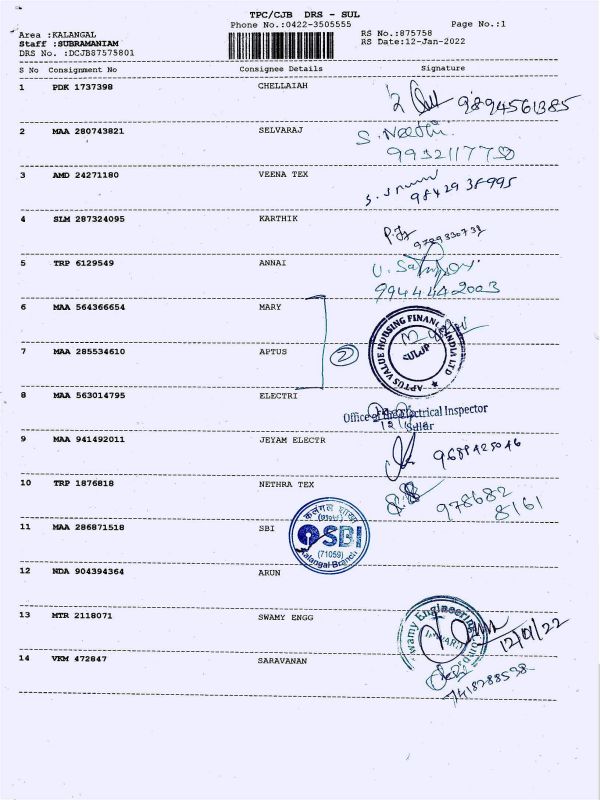 TPC/CJB DRS - SUL
Phone No.:0422-3505555
Page No.:1
Area :KALANGAL
Staff :SUBRAMANIAM
DRS No. :DCJB87575801
RS No.:875758
RS Date:12-Jan-2022
S No Consignment No Consignee Details Signature
1 PDK 1737398 CHELLAIAH
9894561385
2 MAA 280743821 SELVARAJ
S. Neethi
3 AMD 24271180 VEENA TEX
4 SLM 287324095 KARTHIK
9789330731
5 TRP 6129549 ANNAI
9944442003
6 MAA 564366654 MARY
7 MAA 285534610 APTUS
2
APTUS VALUE HOUSING FINANCE INDIA LTD
SULUR
8 MAA 563014795 ELECTRI
Office of the Electrical Inspector
Sulur
9 MAA 941492011 JEYAM ELECTR
9689425046
10 TRP 1876818 NETHRA TEX
978682
8161
11 MAA 286871518 SBI
कलंगल शाखा
SBI
(71059)
Kalangal Branch
12 NDA 904394364 ARUN
13 MTR 2118071 SWAMY ENGG
Swamy Engineering
12/01/22
14 VKM 472847 SARAVANAN
7418288538